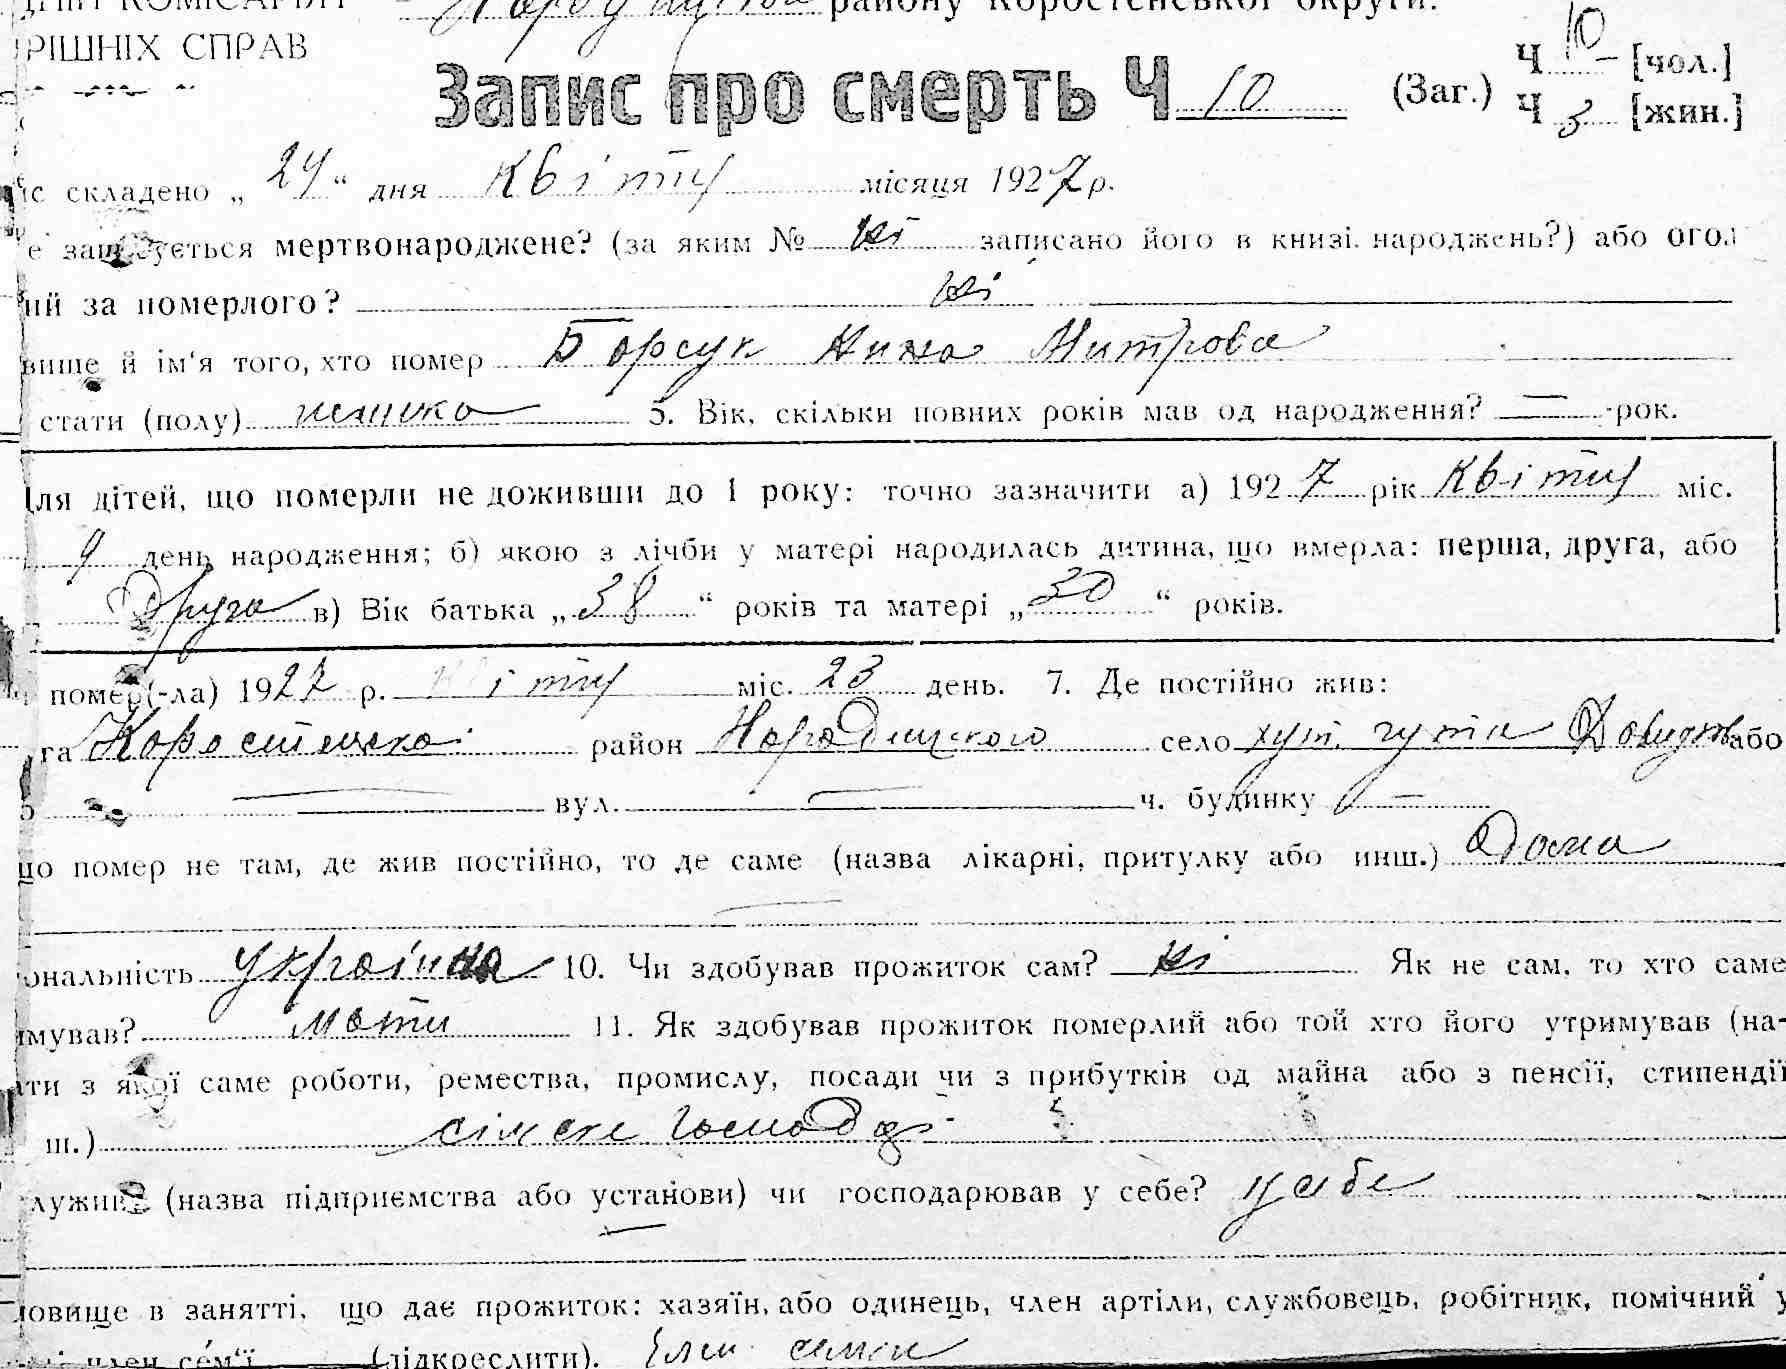 району Коростенської округи.
РІШНІХ СПРАВ
Запис про смерть Ч 10 (Заг.) Ч 10 – [чол.]
Ч 3 [жин.]
іс складено „ 24 “ дня Квітну місяця 1927 р.
мертвонароджене? (за яким № ні записано його в книзі народжень?) або огол
ий за померлого? ні
вище й ім'я того, хто помер Борсук Нина Митрова
стати (полу) жінка 5. Вік, скільки повних років мав од народження? — рок.
ля дітей, що померли не доживши до 1 року: точно зазначити а) 1927 рік Квітну міс.
9 день народження; б) якою з лічби у матері народилась дитина, що вмерла: перша, друга, або
Друга в) Вік батька „ 38 “ років та матері „ 30 “ років.
помер(-ла) 1927 р. Квітну міс. 23 день. 7. Де постійно жив:
га Коростенська район Народицького село хут. гута або
— вул. — ч. будинку —
що помер не там, де жив постійно, то де саме (назва лікарні, притулку або инш.) Дома
ональність українка 10. Чи здобував прожиток сам? ні Як не сам, то хто саме
имував? мати 11. Як здобував прожиток померлий або той хто його утримував (на-
ти з якої саме роботи, ремества, промислу, посади чи з прибутків од майна або з пенсії, стипендії
ш.) сільске
лужив (назва підприємства або установи) чи господарював у себе? у себе
овище в занятті, що дає прожиток: хазяїн, або одинець, член артіли, службовець, робітник, помічний у
член сем'ї (підкреслити). Член семьи